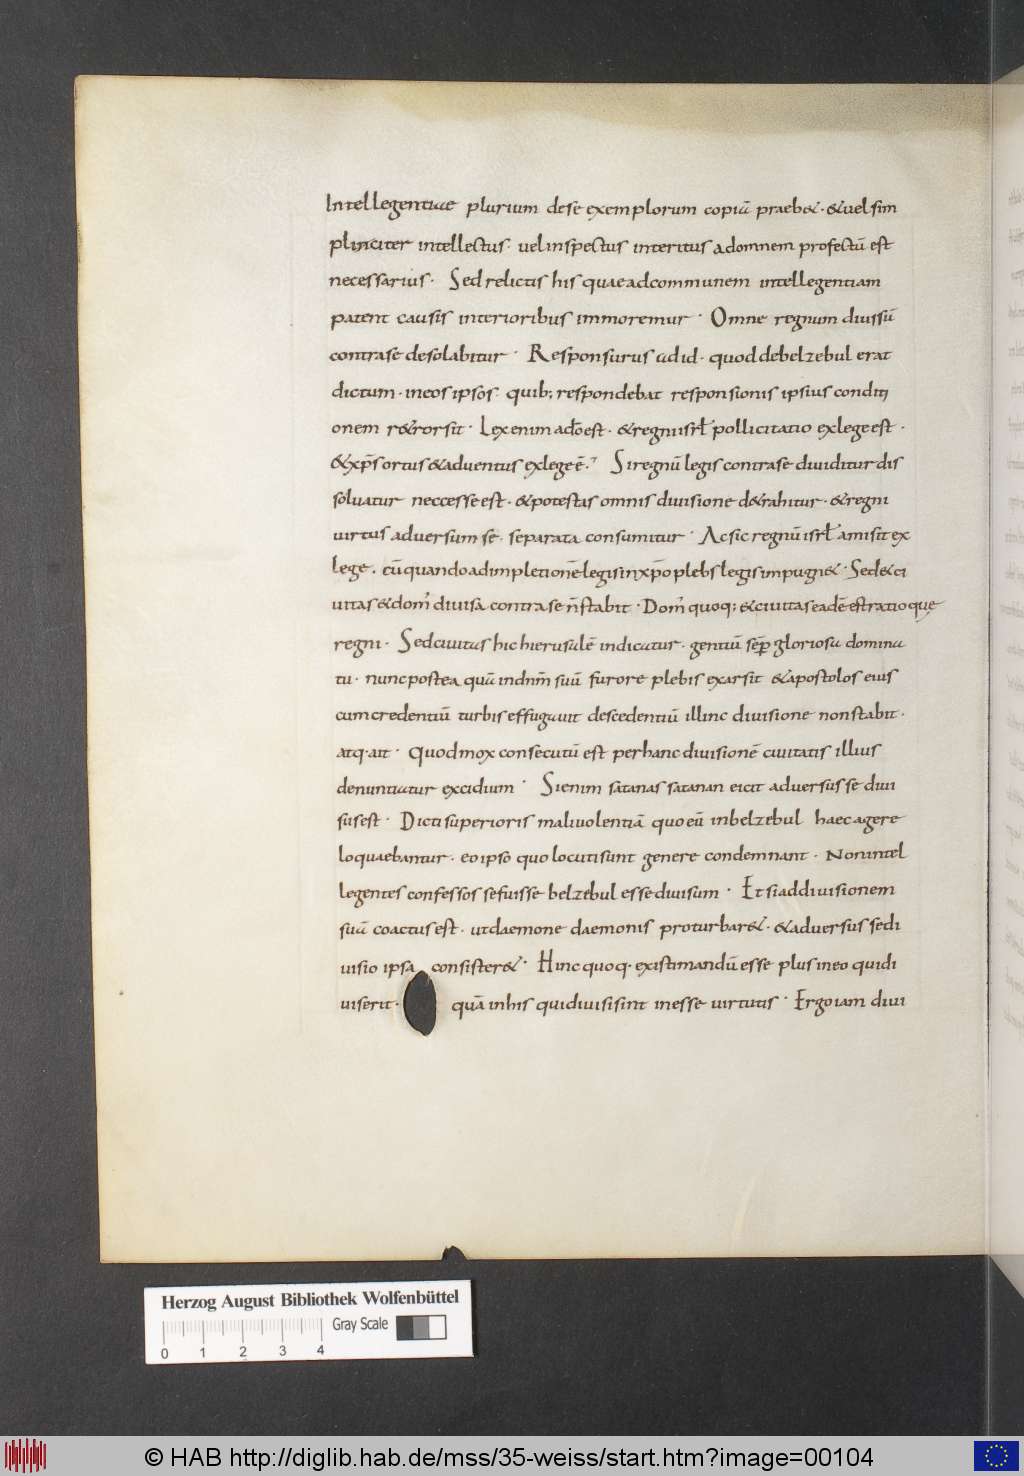 Intellegentiae plurium dese exemplorum copiā praeb&· &uel sim
pliciter intellectus· uel inspectus interitus adomnem profectū est
necessarius· Sed relictis his quae adcommunem intellegentiam
patent causis interioribus immoremur· Omne regnum diuisū
contra se desolabitur· Responsurus ad id· quod debelzebul erat
dictum· in eos ipsos· quib; respondebat responsionis ipsius conditi
onem r&orsit· Lex enim a do est· & regni isrł pollicitatio ex lege est·
& xp̄s ortus & aduentus ex lege ē· Si regnū legis contra se diuiditur dis
soluatur neccesse est· & potestas omnis diuisione d&rahitur· & regni
uirtus aduersum se· separata consumitur· Ac sic regnū isrł amisit ex
lege· cū quando adimpletionē legis in xp̄o plebs legis impugn&· Sed & ci
uitas & dom' diuisa contra se ñ stabit· Dom' quoq; & ciuitas eadē est ratio que
regni· Sed ciuitas hic hierusalē indicatur· gentiū sēp gloriosa domina
tu· nunc postea quā in dnm̄ suū furore plebis exarsit & apostolos eius
cum credentiū turbis effugauit descedentiū illinc diuisione non stabit·
atq· ait· quod mox consecutū est per hanc diuisionē ciuitatis illius
denuntiatur excidium· Si enim satanas satanan eicit aduersus se diui
sus est· Dicti superioris maliuolentiā quo eū in belzebul haec agere
loquaebantur· eo ipso quo locuti sunt genere condemnant· Non intel
legentes confessos se fuisse belzebul esse diuisum· Et si ad diuisionem
suā coactus est· ut daemone daemonis proturbar&· & aduersus se di
uisio ipsa consister&· Hinc quoq· existimandū esse plus in eo qui di
uiserit· quā in his qui diuisi sint inesse uirtutis· Ergo iam diui
Herzog August Bibliothek Wolfenbüttel
Gray Scale
0 1 2 3 4
© HAB http://diglib.hab.de/mss/35-weiss/start.htm?image=00104